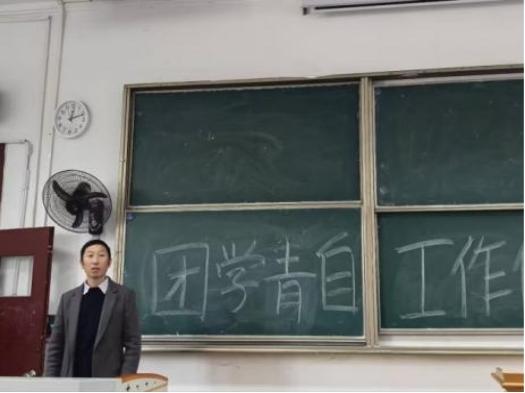 团学青自 工作